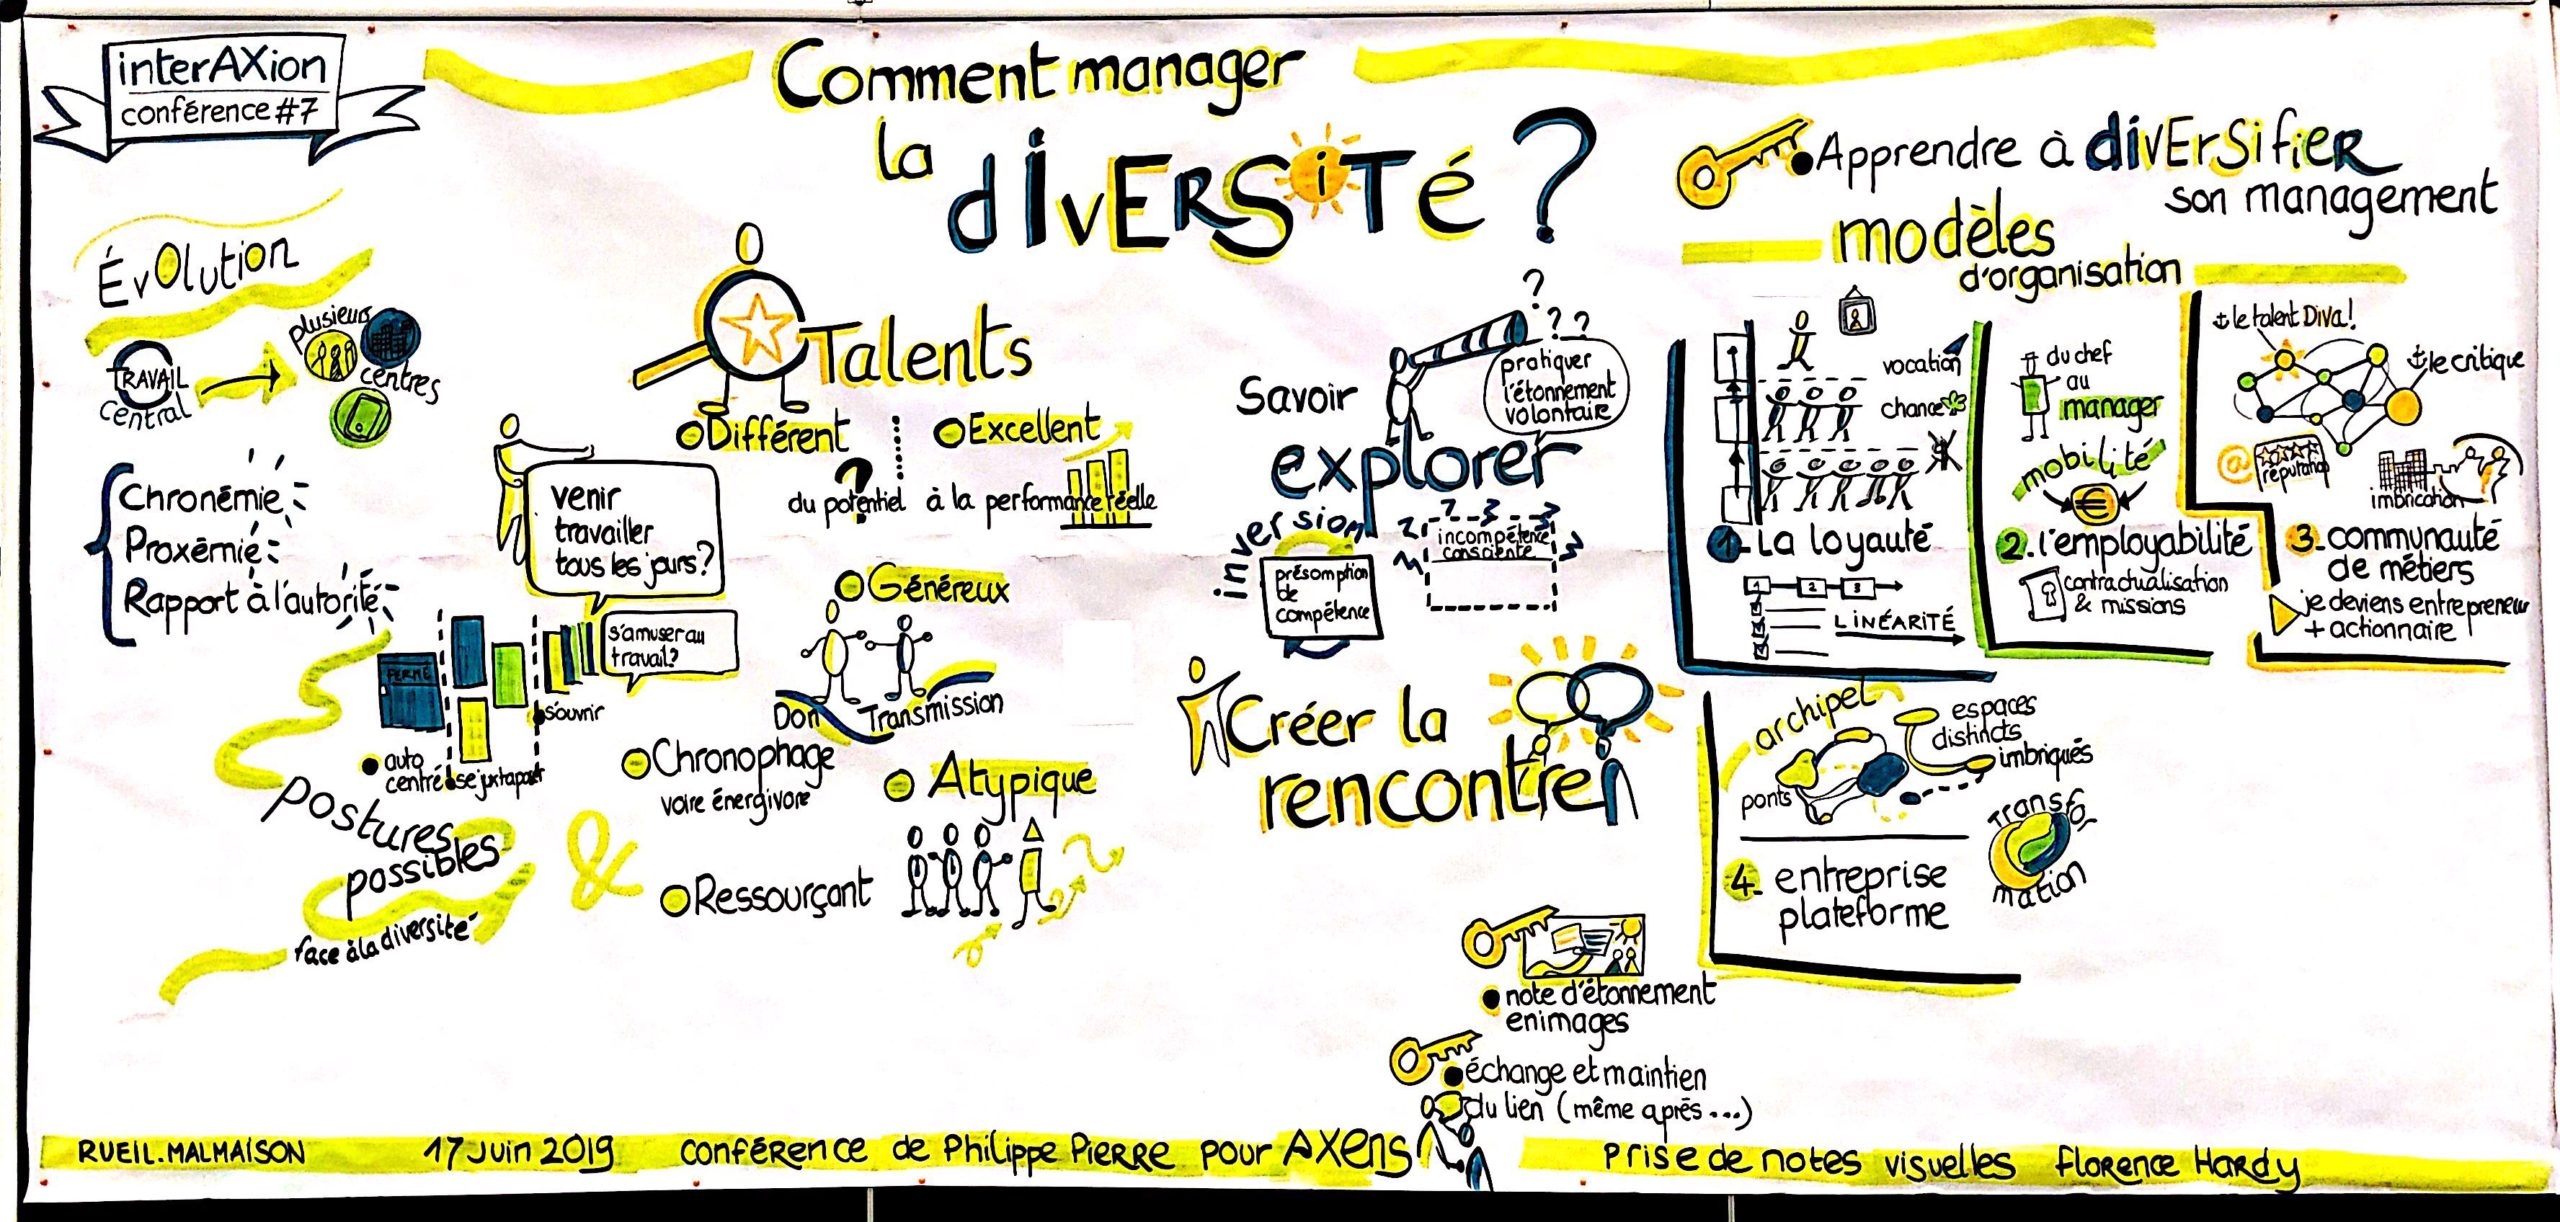 interAXion
conférence #7
Comment manager
la diversité ?
Évolution
TRAVAIL
central
plusieurs
centres
Chronémie
Proxémie
Rapport à l'autorité
venir
travailler
tous les jours?
s'amuser au
travail?
FERMÉ
auto
centré
se juxtaposer
s'ouvrir
postures
possibles
face à la diversité
&
Talents
Différent
Excellent
du potentiel à la performance réelle
?
Généreux
Don
Transmission
Chronophage
voire énergivore
Atypique
Ressourçant
Savoir
explorer
? ? ?
pratiquer
l'étonnement
volontaire
inversion
présomption
de
compétence
incompétence
consciente
Créer la
rencontre
Apprendre à diversifier
son management
modèles
d'organisation
vocation
chance
1. La loyauté
1 2 3
LINÉARITÉ
du chef
au
manager
mobilité
€
2. l'employabilité
contractualisation
& missions
le talent Diva!
le critique
@
réputation
imbrication
3. communauté
de métiers
je deviens entrepreneur
+ actionnaire
archipel
ponts
espaces
distincts
imbriqués
Transfor
mation
4. entreprise
plateforme
note d'étonnement
en images
échange et maintien
du lien (même après...)
RUEIL.MALMAISON 17 Juin 2019 conférence de Philippe Pierre pour AXens Prise de notes visuelles Florence Hardy